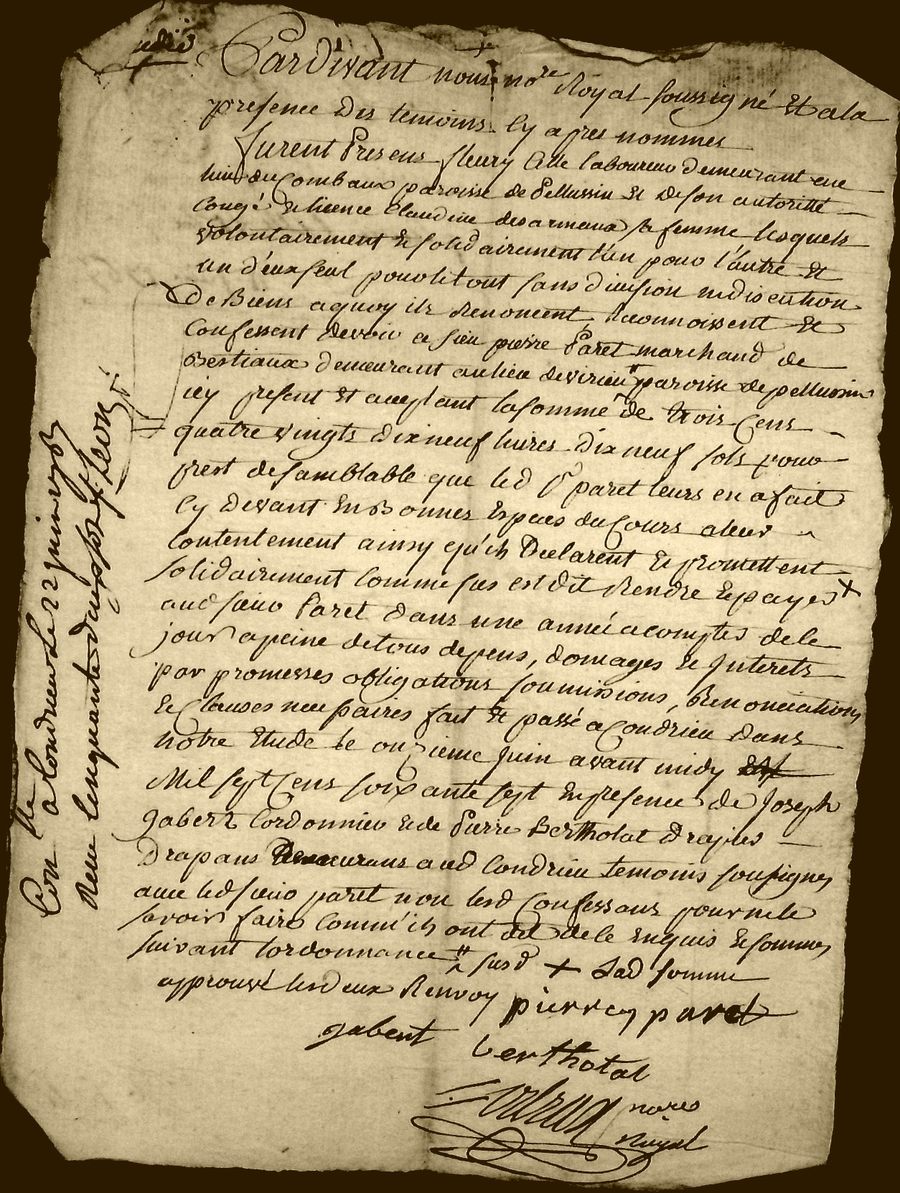 Pardevant nous no.re Royal soussigné Et ala
presence des temoins Cy apres nommes
furent Presens fleury demeurant
paroisse de Pellussin Et de son autorité
Congé Et licence Claudine desarmeaux sa femme lesquels
volontairement Et solidairement l'un pour l'autre Et
un d'eux seul pour le tout sans division ni discution
de Biens aquoy ils Renoncent, Reconnoissent Et
Confessent devoir a sieur pierre Paret marchand de
Bestiaux demeurant au lieu de virieu # paroisse de pellussin
icy present Et aceptant la somme de trois Cens
quatre vingts dix neuf livres dix neuf sols pour
prest de semblable que led Sr paret leurs en a fait
Cy devant En Bonnes Especes du Cours a leur
Contentement ainsy qu'ils Declarent Et promettent
solidairement Comme sus est dit Rendre Et payer +
aud sieur Paret dans une année a compter de ce
jour a peine de tous depens, domages Et Interets
par promesses obligations soumissions, Renonciations
Et Clauses necessaires fait Et passé a Condrieu dans
notre Etude le onzieme Juin avant midy
Mil sept Cens soixante sept En presence de Joseph
Gabert Cordonnier Et de Pierre Bertholat
Drapans Demeurans aud Condrieu temoins soussignes
avec led sieur paret non lesd Confessans pour ne le
savoir faire Comm'ils ont dit de ce Enquis Et sommes
suivant l'ordonnance # susd + Lad somme
approuvé les deux Renvoy pierre paret
gabert
berthotal
nore
Royal
Con.lle a Condrieu Le 22 juin 1767
Receu Cinquante deux sols